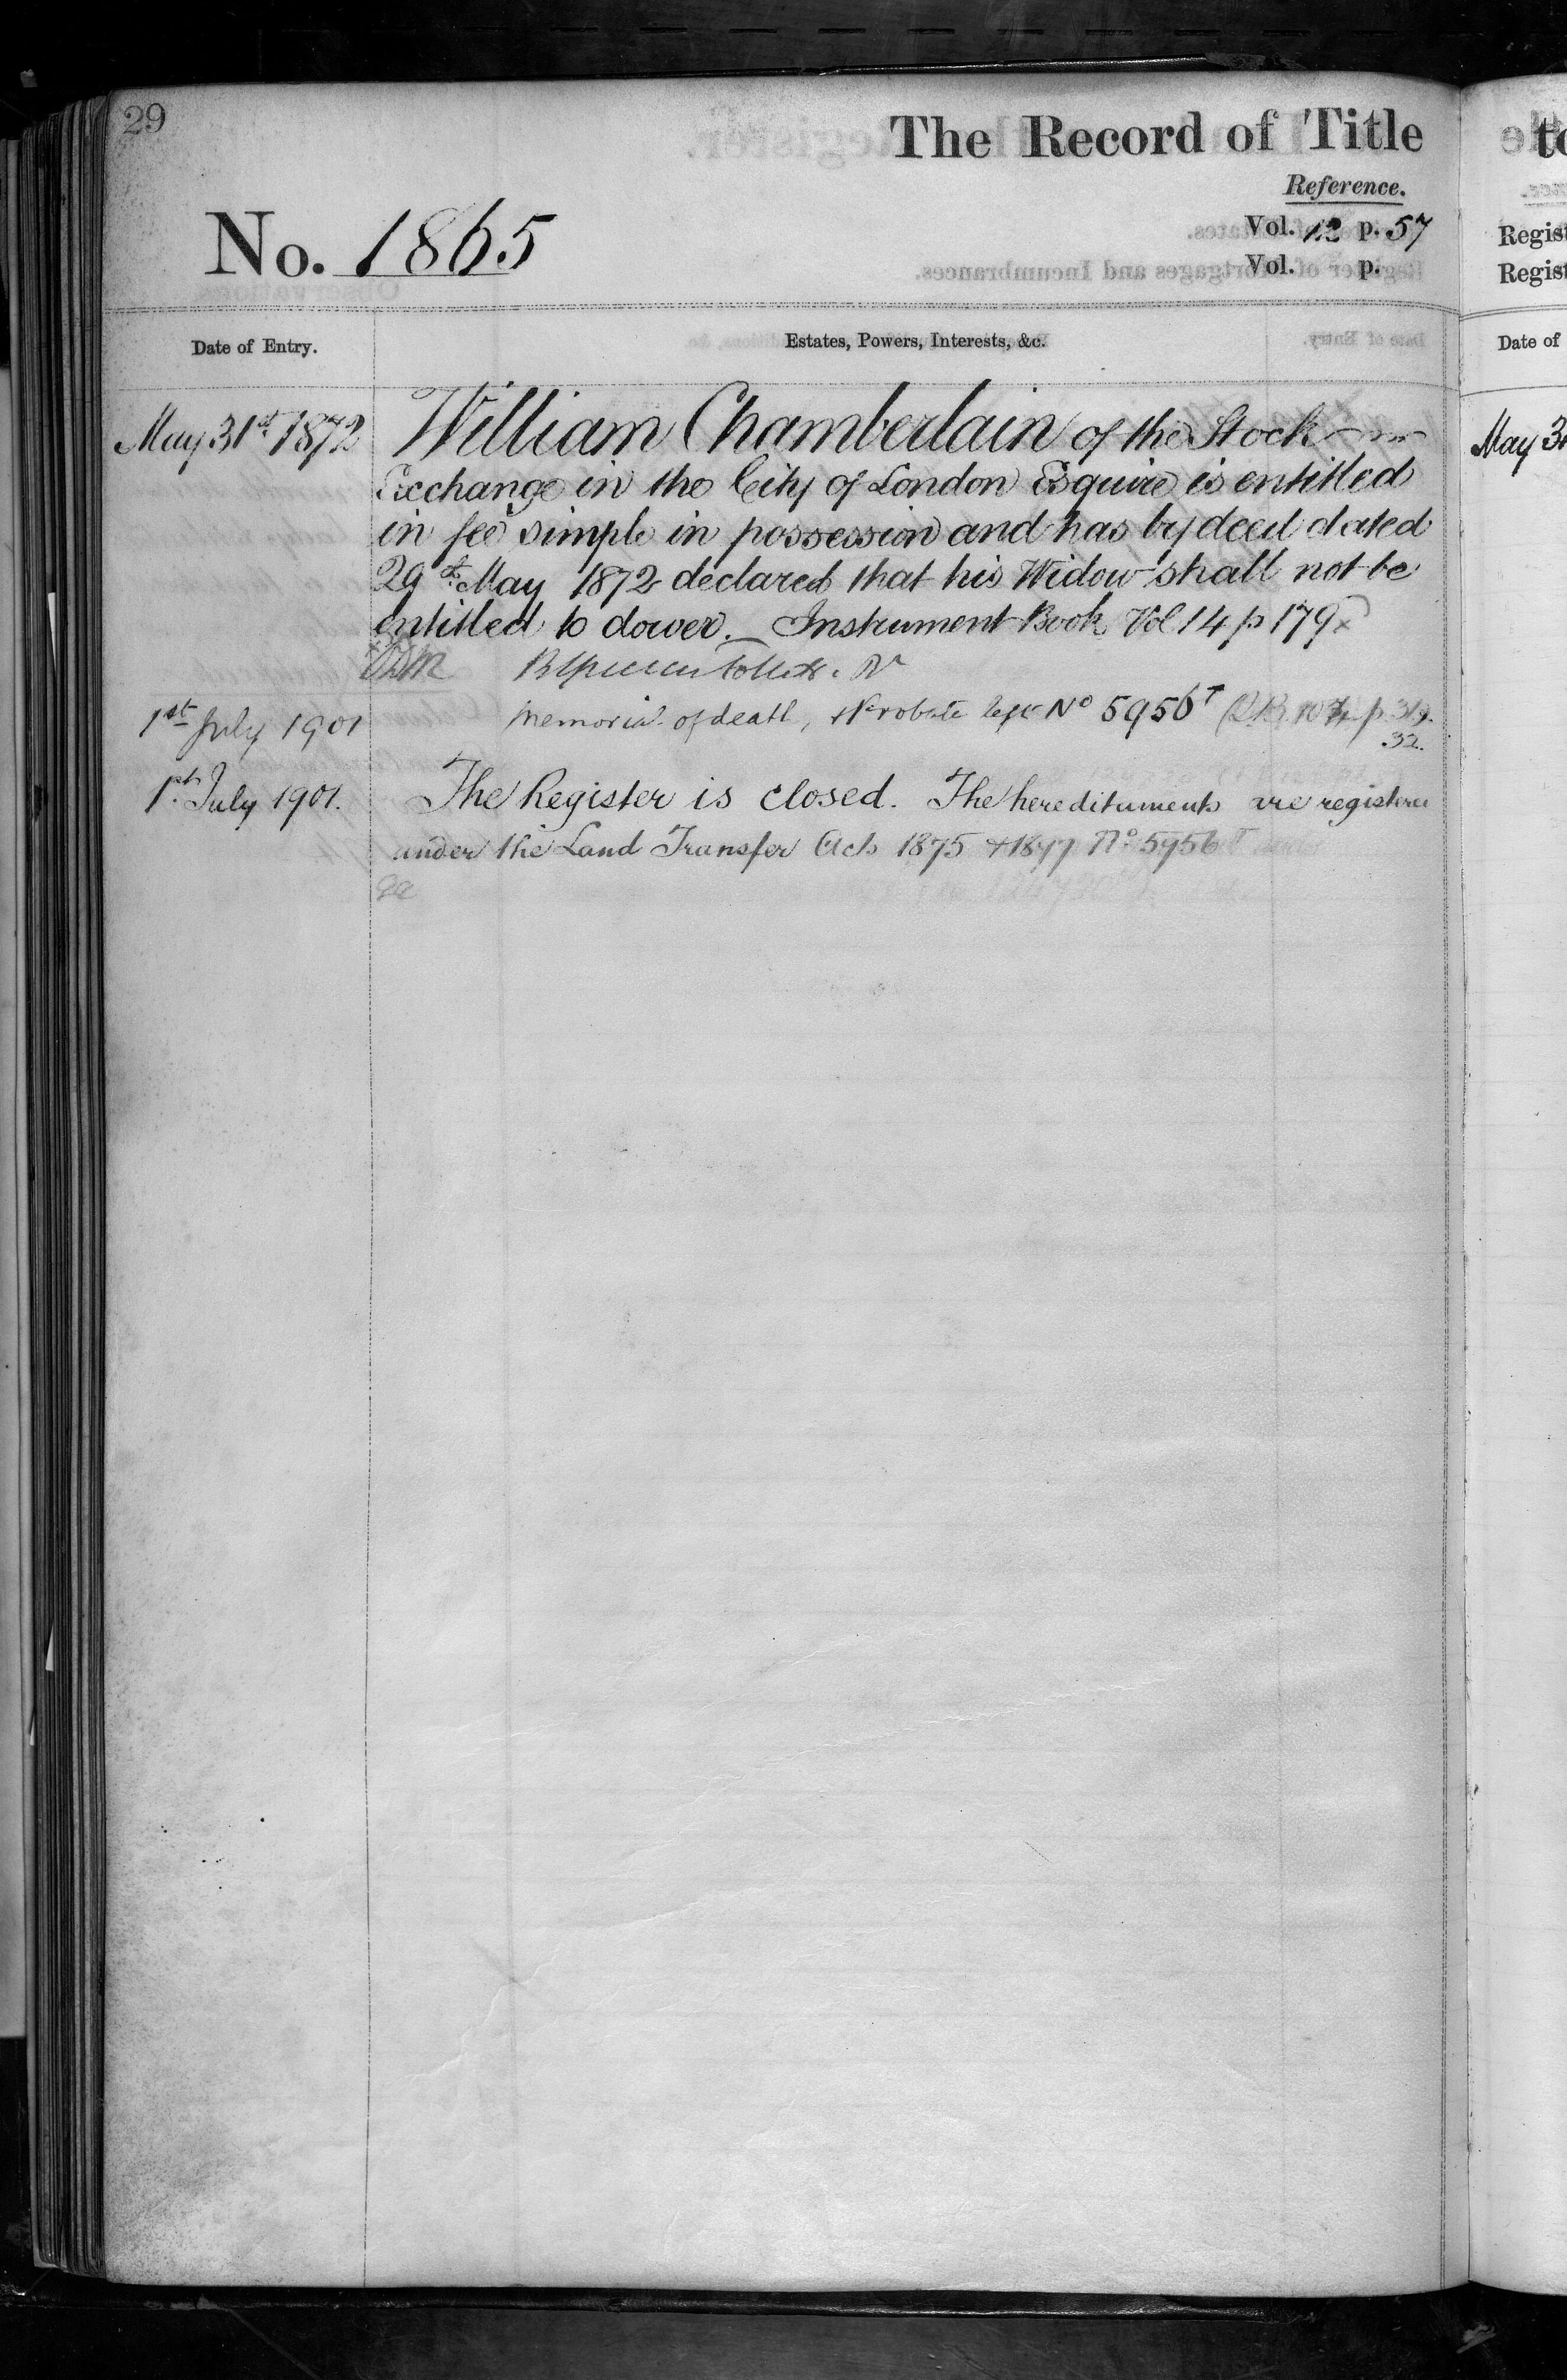 29
The Record of Title
Reference.
No. 1865
Vol. 12 p. 57
Vol. p.
Date of Entry.
Estates, Powers, Interests, &c.
May 31st 1872
William Chamberlain of the Stock
Exchange in the City of London Esquire is entitled
in fee simple in possession and has by deed dated
29th May 1872 declared that his Widow shall not be
entitled to dower. Instrument Book Vol 14 p 179
1st July 1901
Memorial of death, & Probate No 5956T p. 319.
32.
1st July 1901.
The Register is closed. The hereditaments are registered
under the Land Transfer Acts 1875 & 1897 No 5956T
to
Regist
Regist
Date of
May 31